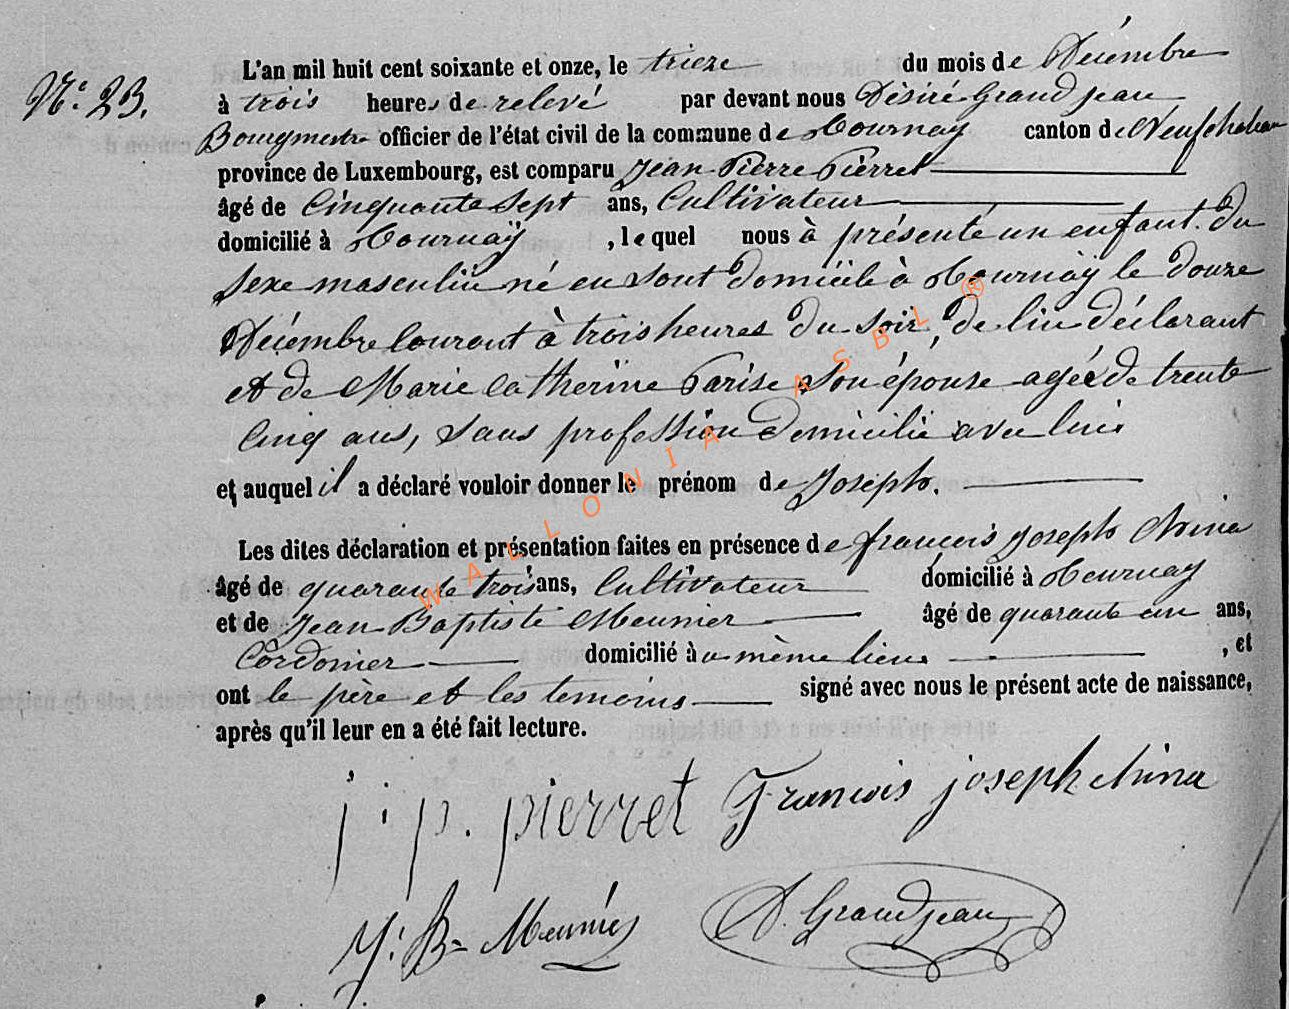 N° 23.
L'an mil huit cent soixante et onze, le trieze du mois de Décembre
à trois heures de relevé par devant nous Désiré Grandjean
Bourgmestre officier de l'état civil de la commune de Tournay canton de Neufchateau
province de Luxembourg, est comparu Jean Pierre Pierret
âgé de Cinquante Sept ans, Cultivateur
domicilié à Tournaÿ, lequel nous à présenté un enfant du
sexe masculin né en sont domicile à Tournaÿ le douze
Décembre Courant à trois heures du soir, de lui déclarant
et de Marie Catherine Parise Son épouse agée de trente
Cinq ans, Sans profession domicilié avec lui
et auquel il a déclaré vouloir donner le prénom de Joseph.
Les dites déclaration et présentation faites en présence de françois Joseph China
âgé de quarante trois ans, Cultivateur domicilié à Tournay
et de Jean Baptiste Meunier âgé de quarante un ans,
Cordonier domicilié à u même lieu, et
ont le père et les temoins signé avec nous le présent acte de naissance,
après qu'il leur en a été fait lecture.
j. p. pierret François joseph china
J. B= Meunier D. Grandjean
WALLONIA ASBL ®